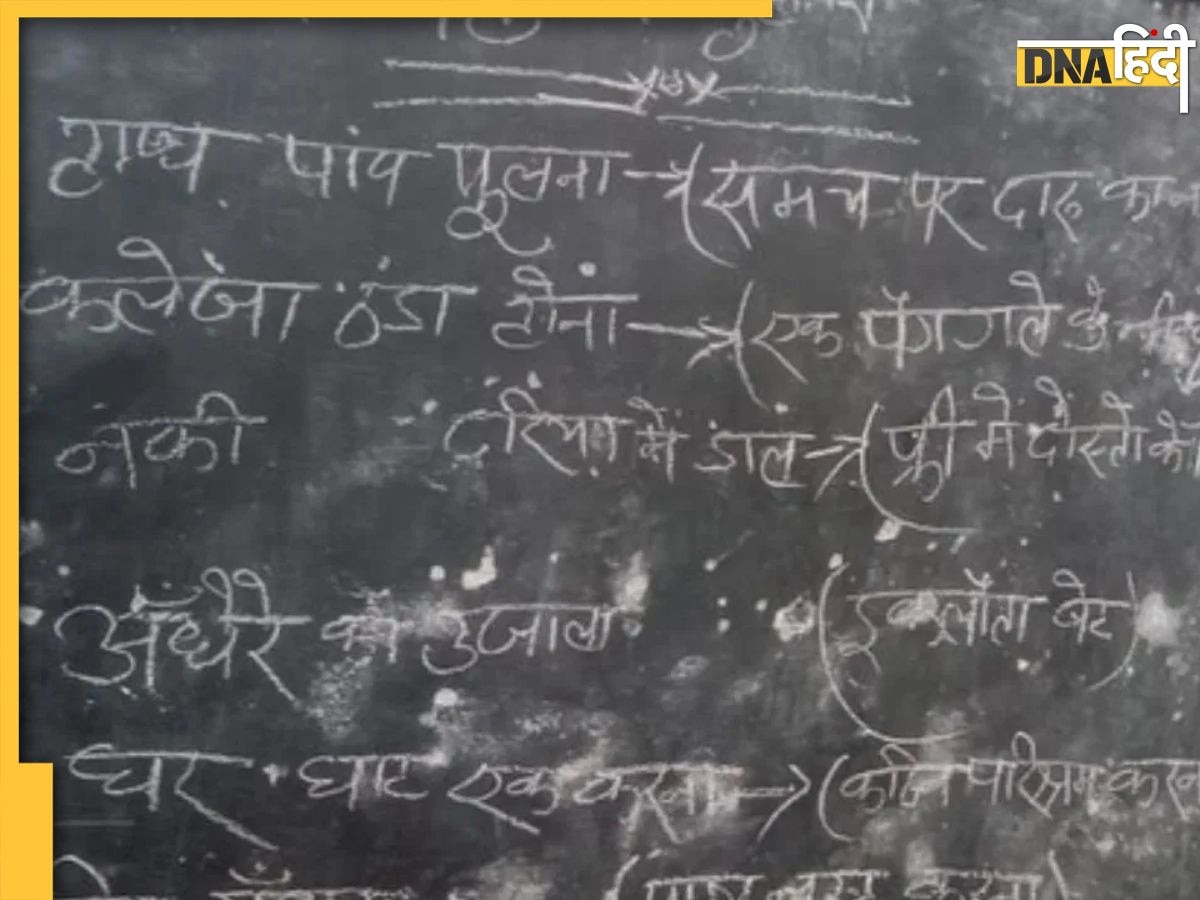 DNA हिंदी
हाथ पांव फूलना → (समय पर दारू का न
कलेजा ठंडा होना → (एक पेग गले के नीचे
नेकी दरिया में डाल → (फ्री में दोस्तो को
अँधेरे का उजाला : : (इकलौता बेटा)
घर घाट एक करना → (कठिन परिश्रम करना